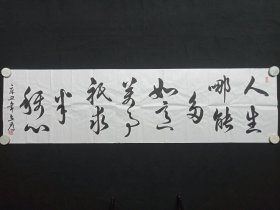 人生
哪能
多
如意
万事
只求
半
称心